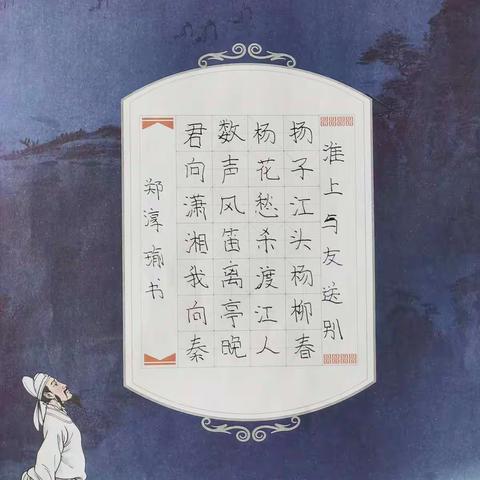 淮上与友送别
扬子江头杨柳春
杨花愁杀渡江人
数声风笛离亭晚
君向潇湘我向秦
郑淳瑜书